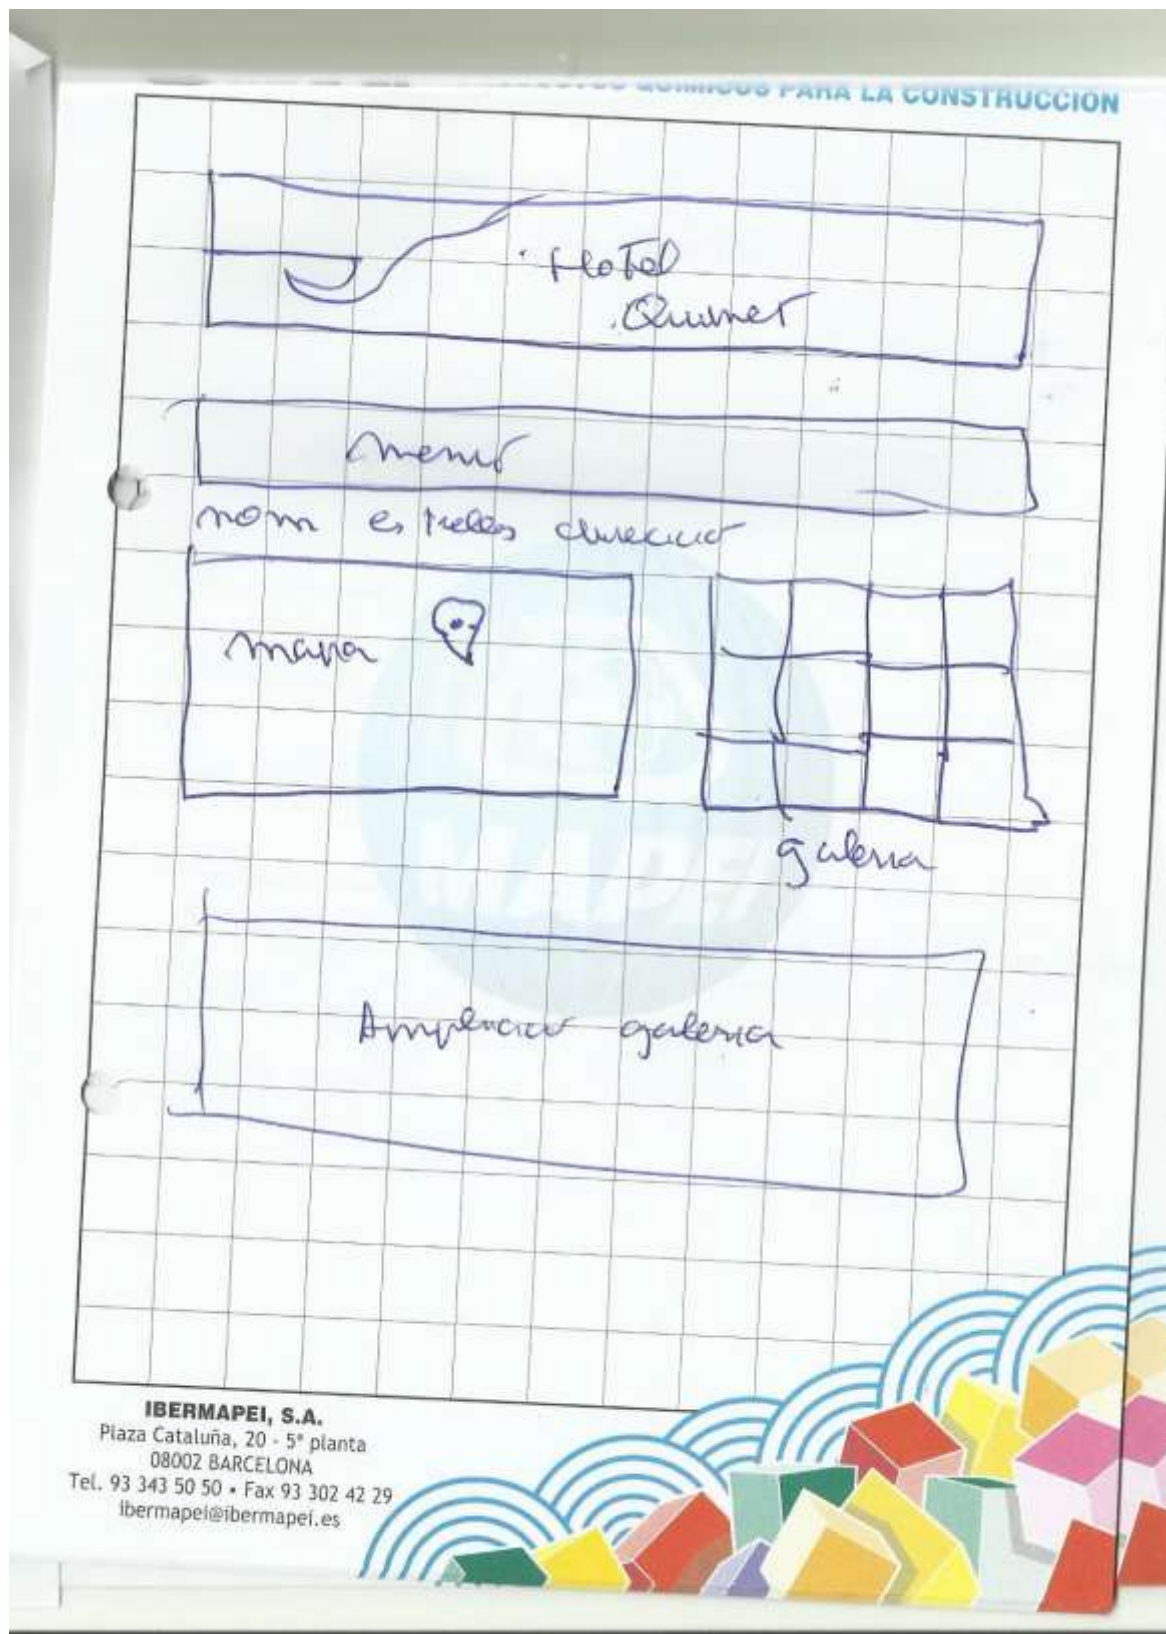 QUIMICOS PARA LA CONSTRUCCION
Hotel
Quimet
menú
nom estrelles direcció
mapa
galeria
MAPEI
Ampliació galeria
IBERMAPEI, S.A.
Plaza Cataluña, 20 - 5ª planta
08002 BARCELONA
Tel. 93 343 50 50 • Fax 93 302 42 29
ibermapei@ibermapei.es